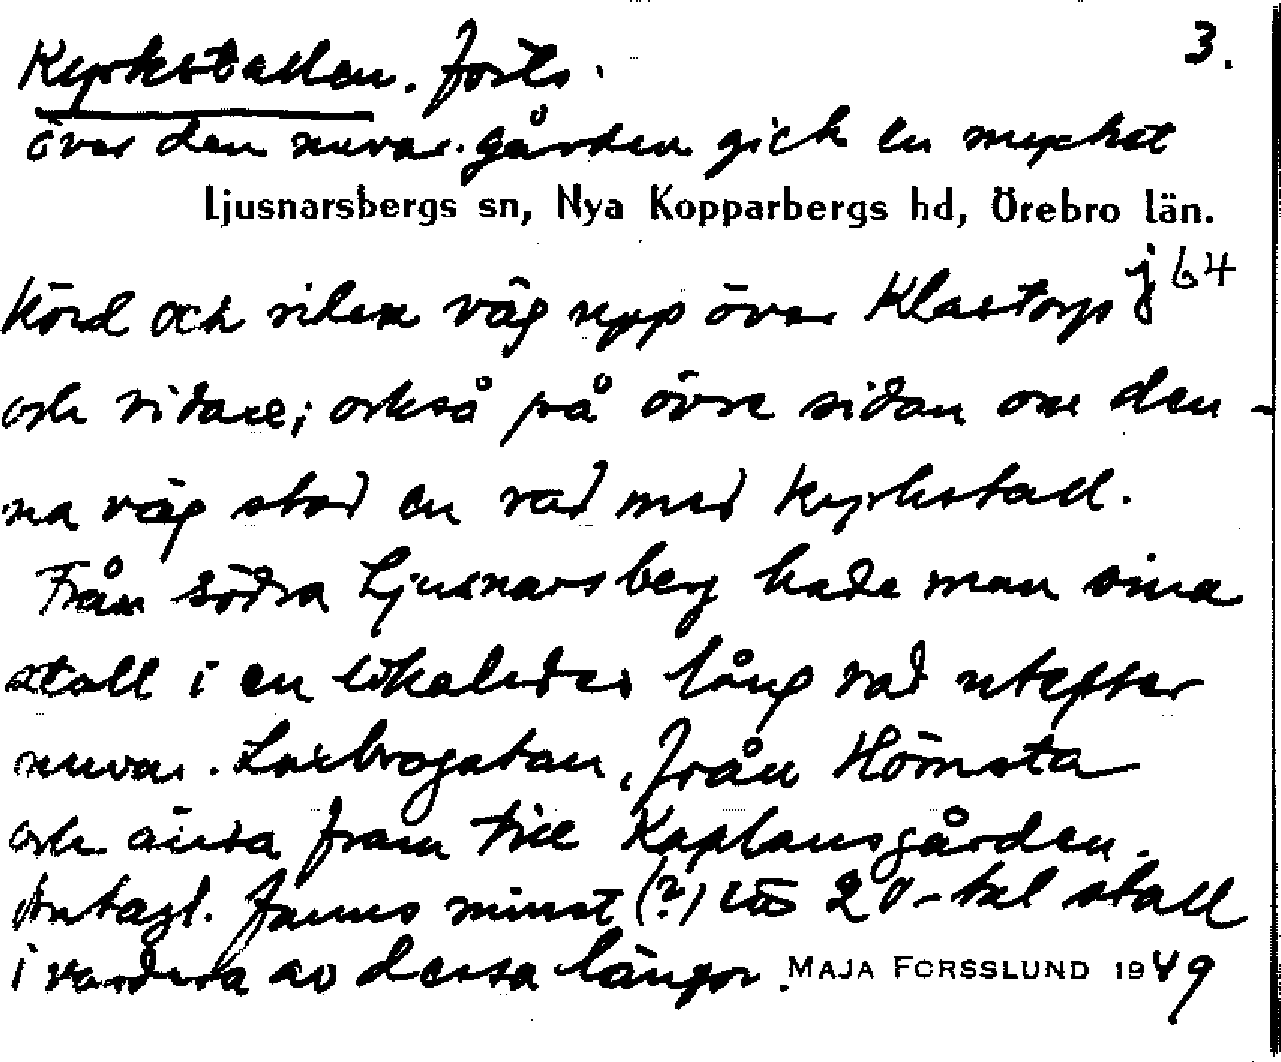 Kyrkstallen. forts. 3.
över den nuvar. gården gick en mycket
Ljusnarsbergs sn, Nya Kopparbergs hd, Örebro län.
körd och riden väg upp över Klastorp j 64
och vidare; också på övre sidan om den-
na väg stod en rad med kyrkstall.
Från södra Ljusnarsberg hade man sina
stall i en likaledes lång rad utefter
nuvar. Laxbrogatan, från Hörnsta
och ända fram till Kaplansgården.
Antagl. fanns minst (?) 20-tal stall
i vardera av dessa längor. MAJA FORSSLUND 1949